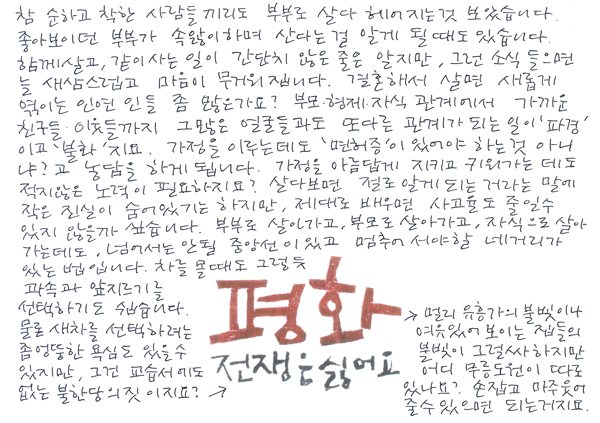 참 순하고 착한 사람들끼리도 부부로 살다 헤어지는것 보았습니다.
좋아보이던 부부가 속앓이하며 산다는걸 알게 될때도 있습니다.
함께살고, 같이 사는 일이 간단치 않은 줄은 알지만, 그런 소식 들으면
늘 새삼스럽고 마음이 무거워집니다. 결혼해서 살면 새롭게
엮이는 인연인들 좀 많은가요? 부모·형제·자식 관계에서 가까운
친구들·이웃들까지 그많은 얼굴들과도 또다른 관계가 되는 일이 '파경'
이고 '불화'지요. 가정을 이루는데도 '면허증'이 있어야 하는것 아니
냐?고 농담을 하게 됩니다. 가정을 아름답게 지키고 키워가는 데도
적지않은 노력이 필요하지요? 살다보면 절로 알게 되는거라는 말에
작은 진실이 숨어있기는 하지만, 제대로 배우면 사고율도 줄일수
있지 않을까 싶습니다. 부부로 살아가고, 부모로 살아가고, 자식으로 살아
가는데도, 넘어서는 안될 중앙선이 있고 멈추어 서야할 네거리가
있는 법입니다. 차를 몰때도 그렇듯
과속과 앞지르기를
선택하기도 쉽습니다.
물론 새차를 선택하려는
좀 엉뚱한 욕심도 있을수
있지만, 그건 교습서에도
없는 불한당의 짓이지요? →
평화
전쟁은 싫어요
→ 멀리 유흥가의 불빛이나
여유있어 보이는 집들의
불빛이 그럴싸 하지만
어디 무릉도원이 따로
있나요? 손잡고 마주웃어
줄수 있으면 되는거지요.